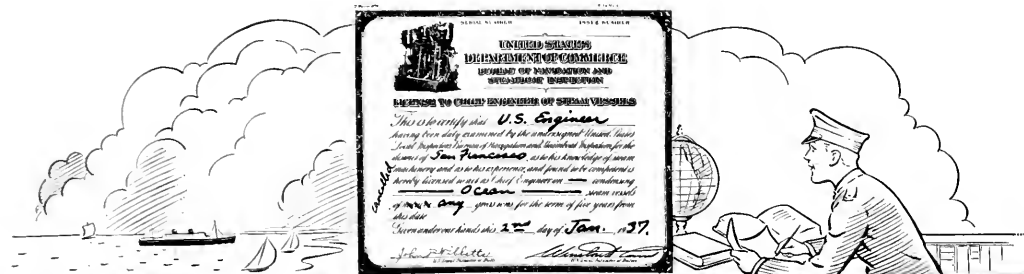 SERIAL NUMBER ISSUE NUMBER
UNITED STATES
DEPARTMENT OF COMMERCE
BUREAU OF NAVIGATION AND
STEAMBOAT INSPECTION
LICENSE TO CHIEF ENGINEER OF STEAM VESSELS
This is to certify that U.S. Engineer
having been duly examined by the undersigned United States
Local Inspectors Bureau of Navigation and Steamboat Inspection, for the
district of San Francisco, as to his knowledge of steam
machinery and as to his experience, and found to be competent is
hereby licensed to act as Chief Engineer on — condensing
Ocean steam vessels
of xxx any gross tons for the term of five years from
this date
Given under our hands this 2nd day of Jan. 1937.
cancelled
John Willette